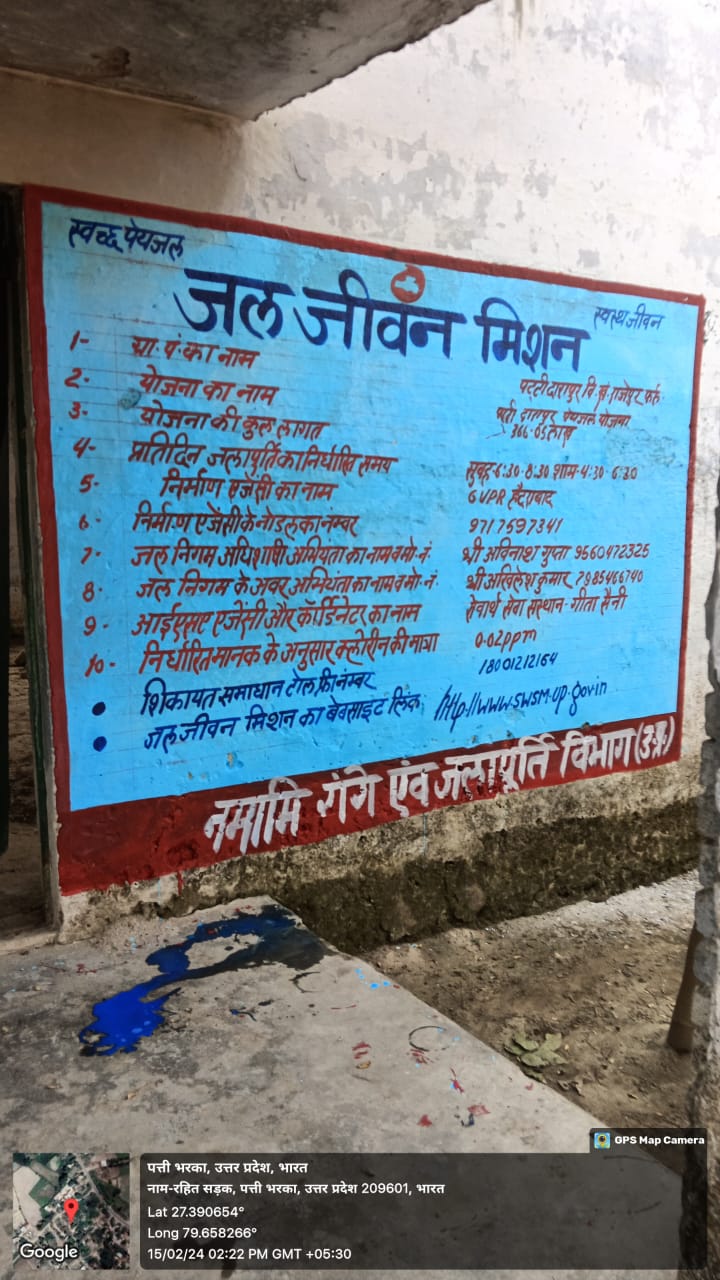 स्वच्छ पेयजल
जल जीवन मिशन
स्वस्थ जीवन
1- ग्रा.पं.का नाम पट्टीदारापुर वि.ख.राजेपुर फर्रु.
2- योजना का नाम पट्टी दारापुर पेयजल योजना
3- योजना की कुल लागत 366.05 लाख
4- प्रतिदिन जलापूर्ति का निर्धारित समय सुबह-6:30-8:30 शाम-4:30-6:30
5- निर्माण एजेंसी का नाम GVPR हैदराबाद
6- निर्माण एजेंसी के नोडल का नंम्बर 9717597341
7- जल निगम अधिशाषी अभियंता का नाम व मो.नं. श्री अविनाश गुप्ता 9560472325
8- जल निगम के अवर अभियंता का नाम व मो.नं. श्री अखिलेश कुमार 7985466740
9- आईएसए एजेंसी और कॉर्डिनेटर का नाम सेवार्थ सेवा संस्थान-गीता सैनी
10- निर्धारित मानक के अनुसार क्लोरीन की मात्रा 0.02ppm
● शिकायत समाधान टोल फ्री नंम्बर 18001212164
● जल जीवन मिशन का बेबसाइट लिंक http://www.swsm.up.gov.in
नमामि गंगे एंव जलापूर्ति विभाग (उ.प्र.)
GPS Map Camera
पत्ती भरका, उत्तर प्रदेश, भारत
नाम-रहित सड़क, पत्ती भरका, उत्तर प्रदेश 209601, भारत
Lat 27.390654°
Long 79.658266°
15/02/24 02:22 PM GMT +05:30
Google